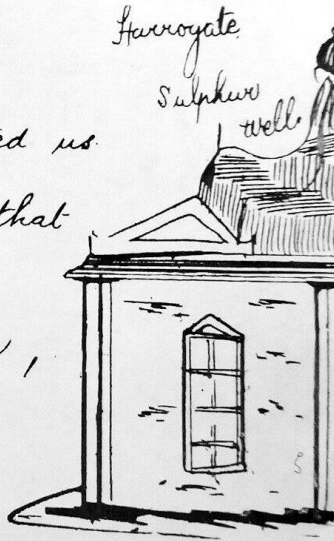 Harrogate
Sulphur
well.
ed us
that